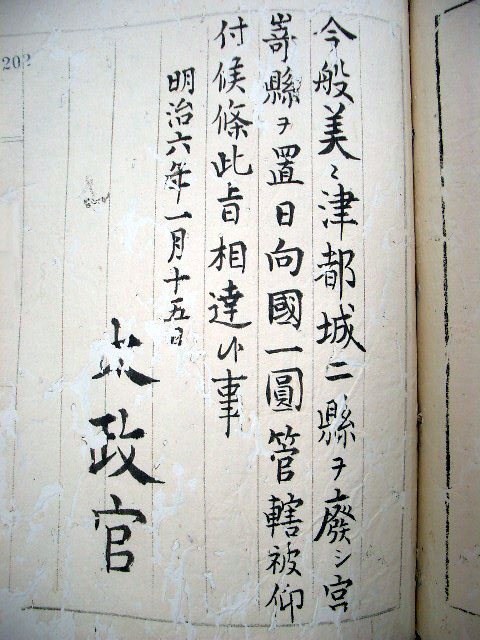 今般美〻津都城二縣ヲ廢シ宮
嵜縣ヲ置日向國一圓管轄被仰
付候條此旨相達候事
明治六年一月十五日
太政官
202